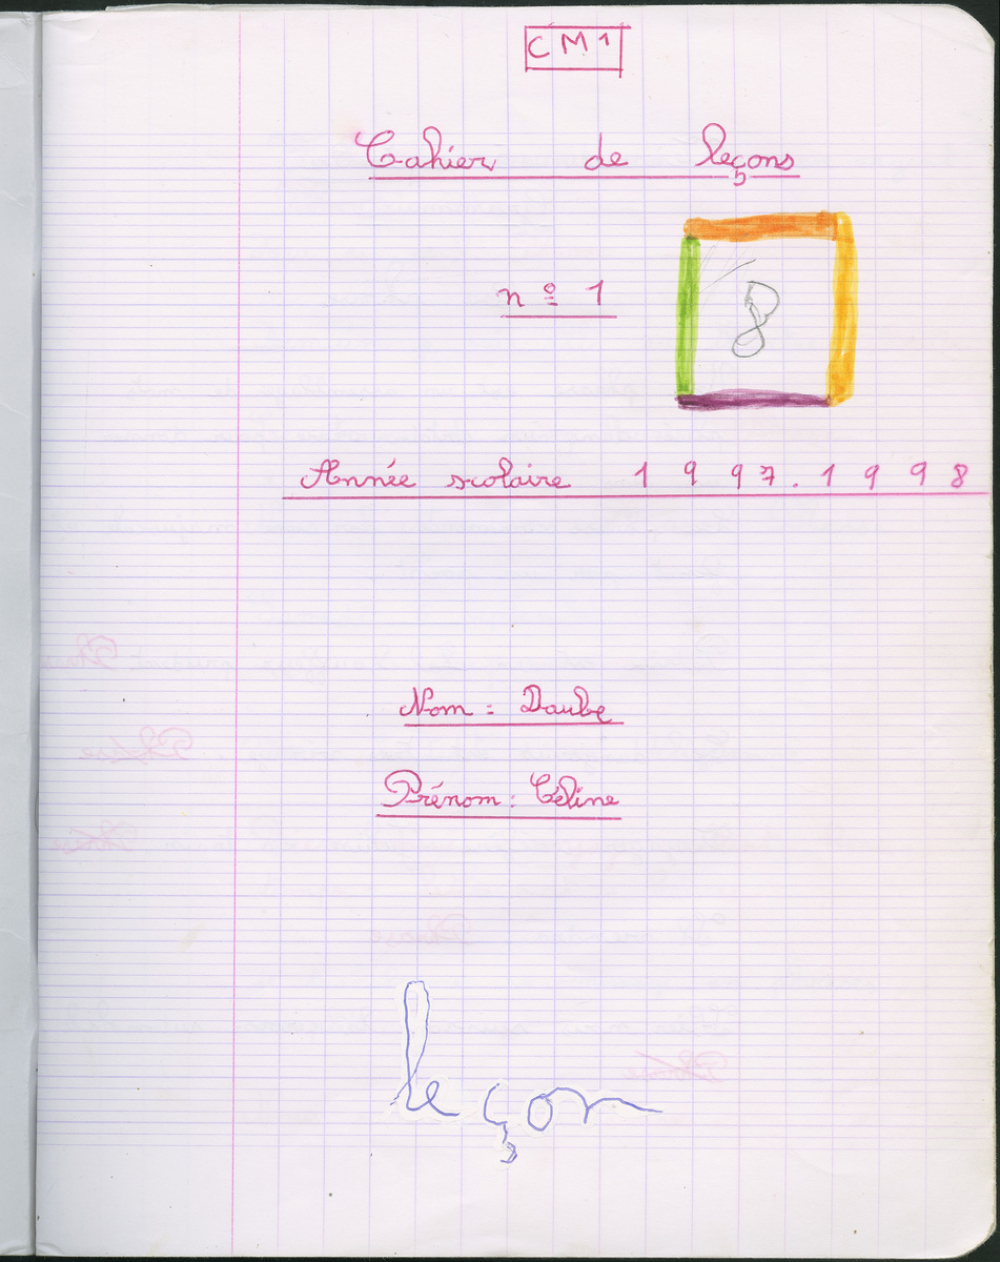 CM1
Cahier de leçons
n° 1
8
Année scolaire 1997.1998
Nom : Daube
Prénom : Céline
leçon